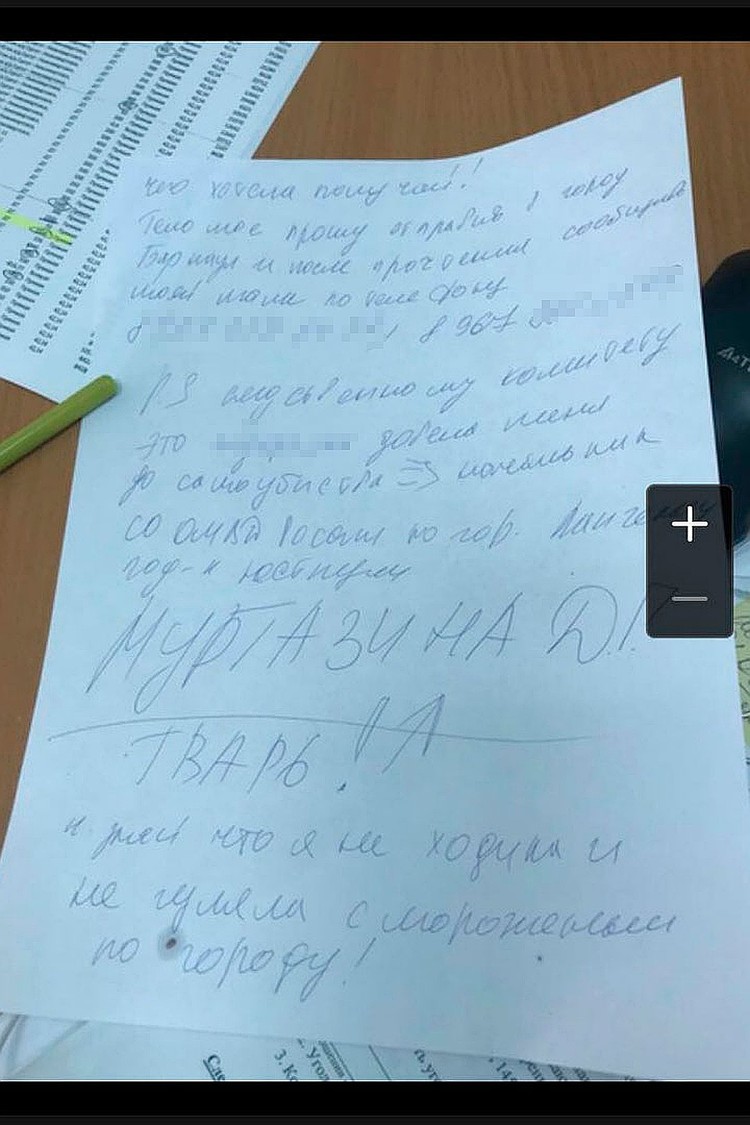 чего хотела получай!!
Тело мое прошу отправить в город
Барнаул и после прочтения сообщить
моей маме по телефону
8 , 8 967
PS следственному комитету
это довела меня
до самоубийства => начальник
СО ОМВД России по гор.
юстиции
МУРТАЗИНА Д.!
ТВАРЬ!
и знай что я не ходила и
не гуляла с мороженым
по городу!